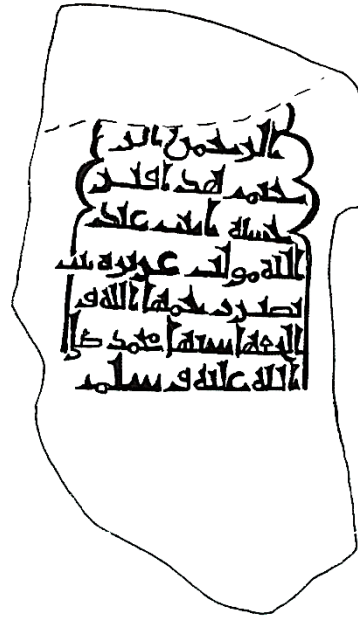 الرحمن الر
حيم هذا قبر
حسنة ابنت عبد
الله مولى بنت
نصر رحمها الله و
الحقها بنبيها محمد صلى
الله عليه و سلم